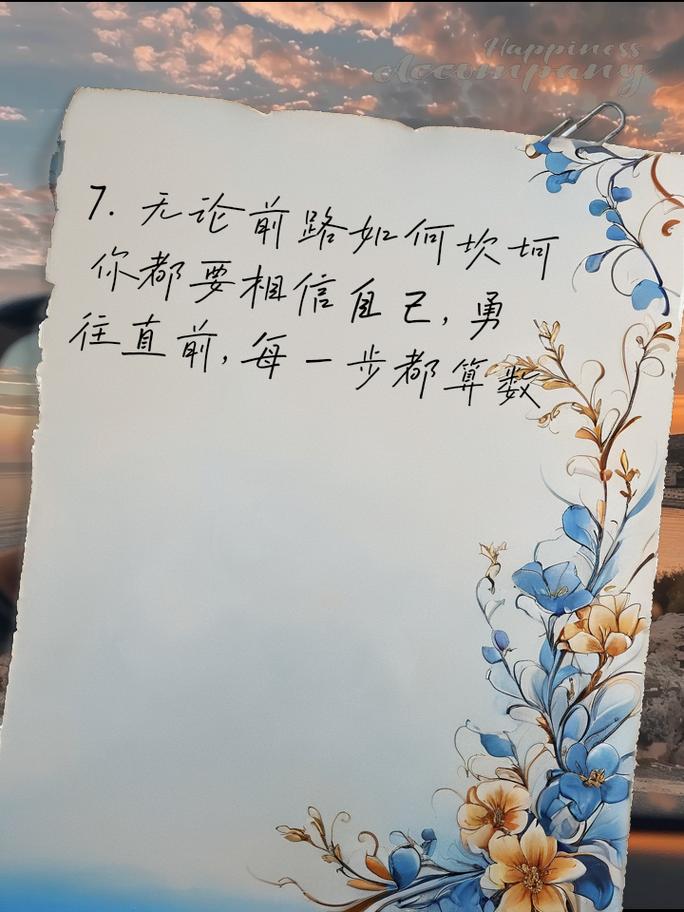 Happiness
Accompany
7. 无论前路如何坎坷
你都要相信自己,勇
往直前,每一步都算数